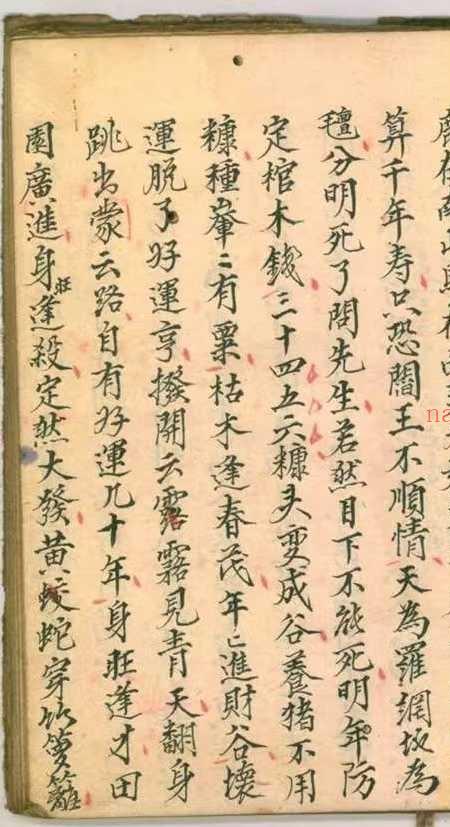 算千年寿只恐閻王不順情天為羅網地為
氊分明死了問先生若然目下不能死明年防
定棺木錢三十四五六糠头变成谷養猪不用
糠種輋〻有粟枯木逢春茂年〻進財谷壞
運脱了好運亨撥開云露霧見青天翻身
跳出蒙云路自有好運几十年身旺逢才田
園廣進身旺逢殺定然大發黄蛟蛇穿竹箩籬